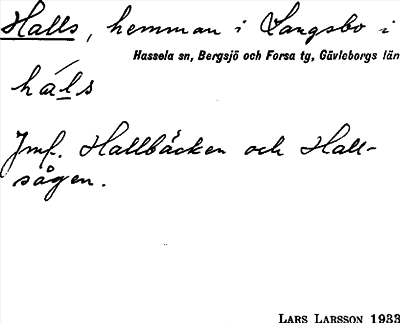 Halls, hemman i Langsbo i
Hassela sn, Bergsjö och Forsa tg, Gävleborgs län
háls
Jmf. Hallbäcken och Hall-
sågen.
LARS LARSSON 1933